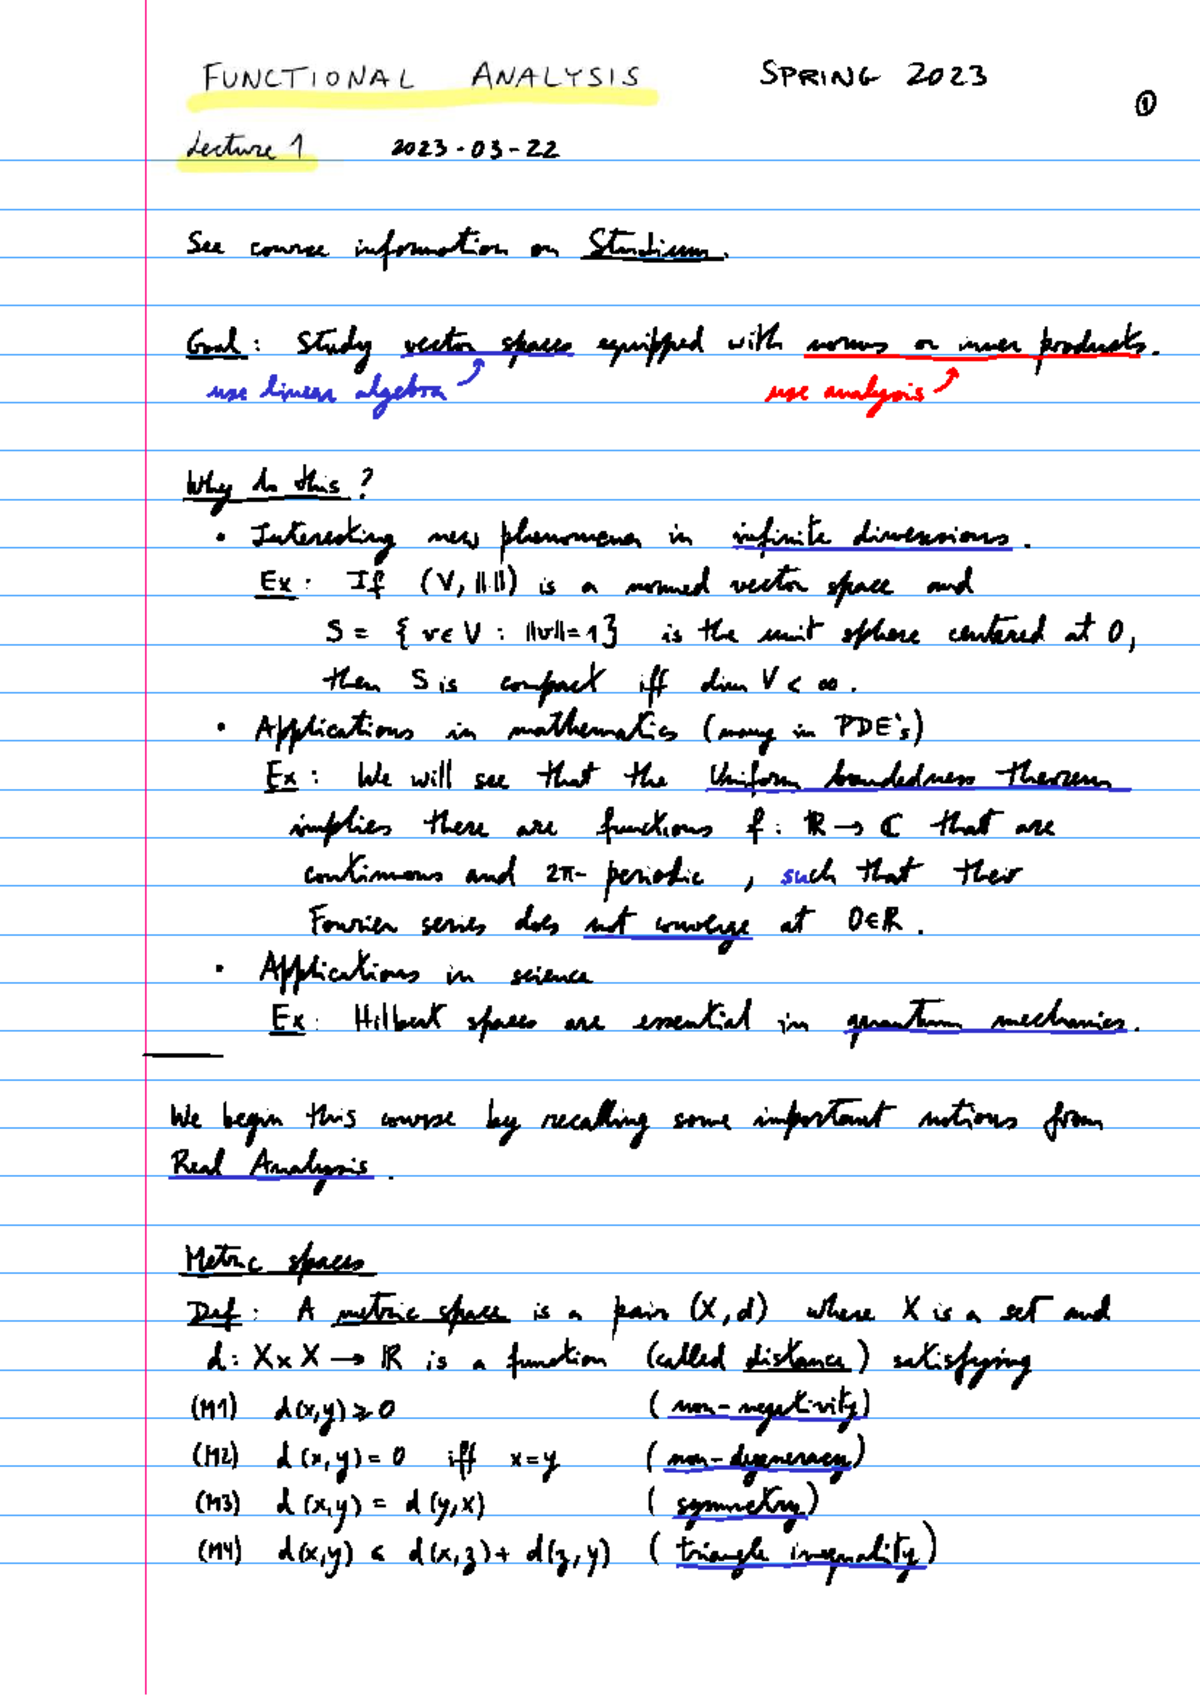 FUNCTIONAL ANALYSIS SPRING 2023
①
Lecture 1 2023-03-22
See course information on Studium.
Goal: Study vector spaces equipped with norms or inner products.
use linear algebra use analysis
Why do this?
• Interesting new phenomena in infinite dimensions.
Ex: If (V, ||·||) is a normed vector space and
S = {v∈V : ||v||=1} is the unit sphere centered at 0,
then S is compact iff dim V < ∞.
• Applications in mathematics (many in PDE's)
Ex: We will see that the Uniform boundedness theorem
implies there are functions f: ℝ → ℂ that are
continuous and 2π-periodic, such that their
Fourier series does not converge at 0∈ℝ.
• Applications in science
Ex: Hilbert spaces are essential in quantum mechanics.
We begin this course by recalling some important notions from
Real Analysis.
Metric spaces
Def: A metric space is a pair (X,d) where X is a set and
d: X×X → ℝ is a function (called distance) satisfying
(M1) d(x,y) ≥ 0 (non-negativity)
(M2) d(x,y) = 0 iff x=y (non-degeneracy)
(M3) d(x,y) = d(y,x) (symmetry)
(M4) d(x,y) ≤ d(x,z) + d(z,y) (triangle inequality)